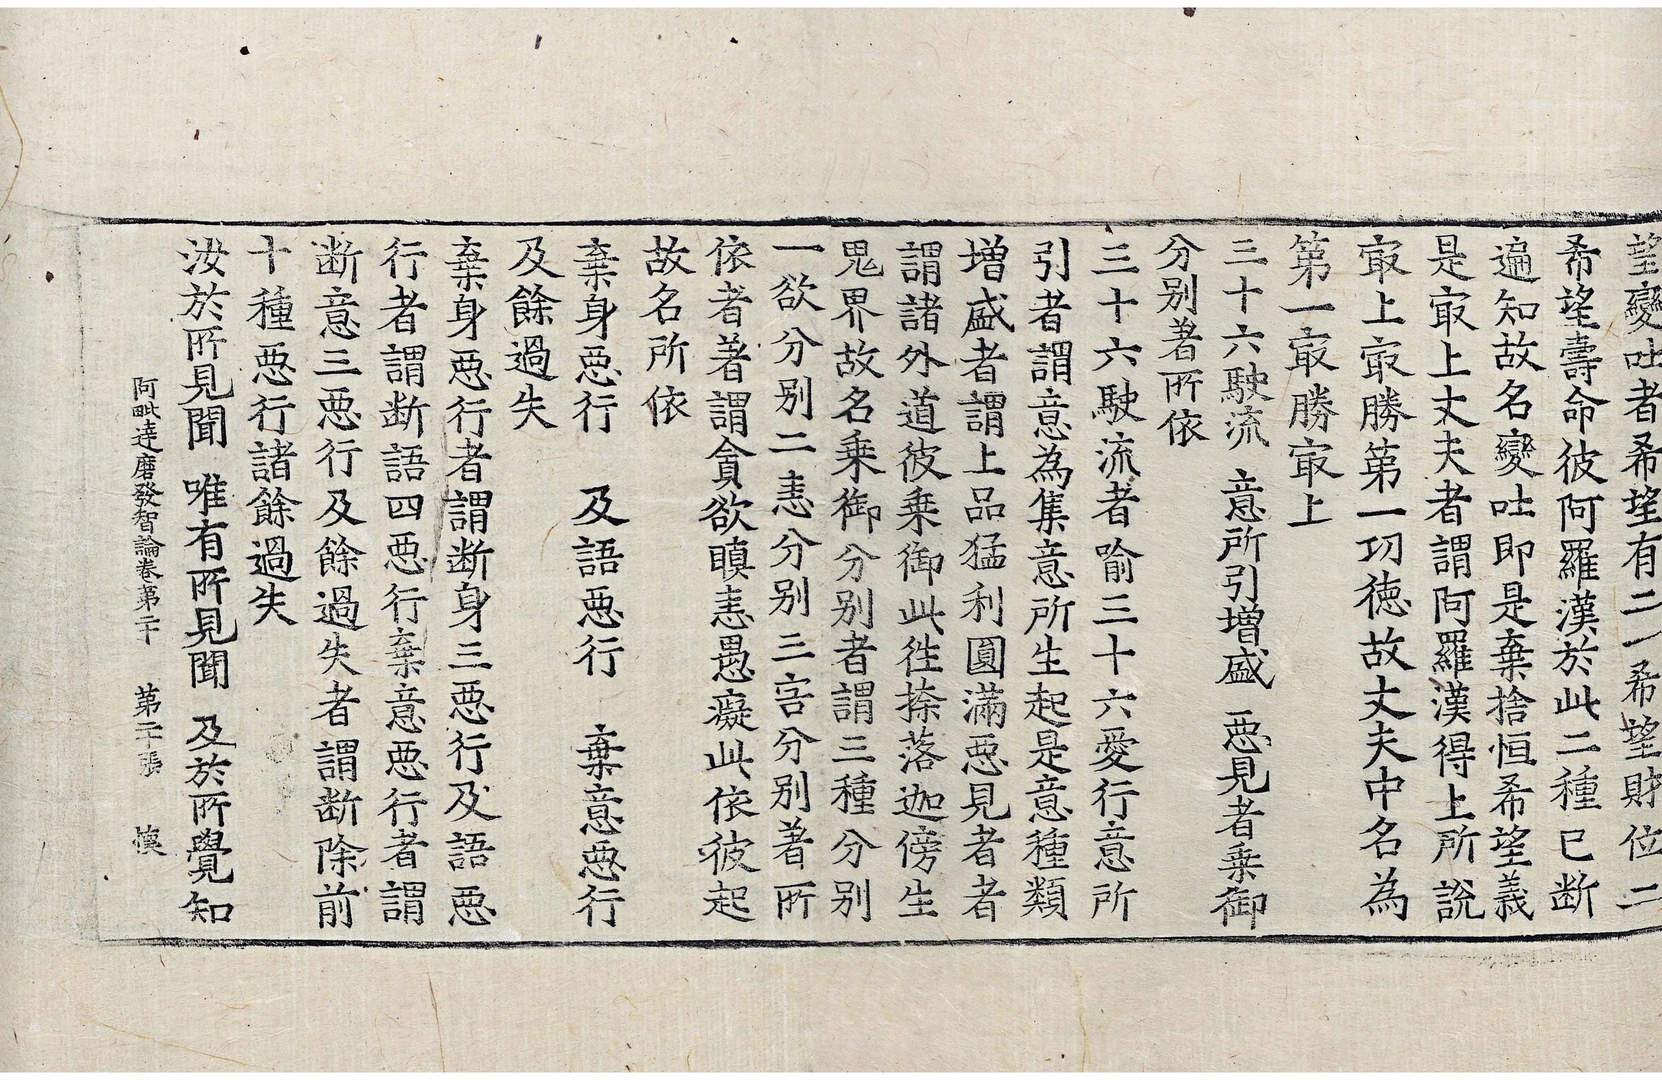 望變吐者希望有二一希望財位二
希望壽命彼阿羅漢於此二種已断
遍知故名變吐即是棄捨恒希望義
是㝡上丈夫者謂阿羅漢得上所說
㝡上㝡勝第一功德故丈夫中名為
第一㝡勝㝡上
三十六駛流 意所引增盛 惡見者乗御
分別著所依
三十六駛流者喻三十六愛行意所
引者謂意為集意所生起是意種類
增盛者謂上品猛利圓滿惡見者者
謂諸外道彼乗御此徃捺落迦傍生
鬼界故名乗御分別者謂三種分別
一欲分別二恚分別三害分別著所
依者著謂貪欲瞋恚愚癡此依彼起
故名所依
棄身惡行 及語惡行 棄意惡行
及餘過失
棄身惡行者謂断身三惡行及語惡
行者謂断語四惡行棄意惡行者謂
断意三惡行及餘過失者謂断除前
十種惡行諸餘過失
汝於所見聞 唯有所見聞 及於所覺知
阿毗達磨發智論卷第二十 第二十張